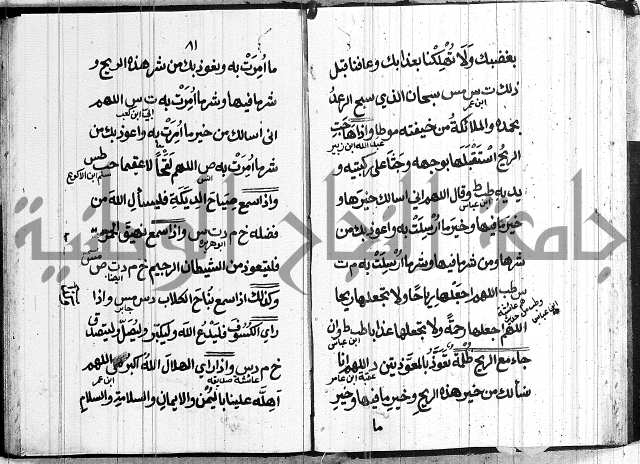 بغضبك ولا تهلكنا بعذابك وعافنا قبل
ذلك ت س مس سبحان الذي سبح الرعد
ابن عمر
بحمده والملائكة من خيفته موطا واذا هاجت
عبد الله ابن زبير
الريح استقبلها بوجهه وجثا على ركبتيه و
يديه طب ط وقال اللهم انى اسالك خيرها و
ابن عباس
خير ما فيها وخير ما ارسلت به واعوذ بك من
شرها ومن شر ما فيها وشر ما ارسلت به م ت
س طب اللهم اجعلها رياحا ولا تجعلها ريحا
عن عائشة
اللهم اجعلها رحمة ولا تجعلها عذابا طب ط وان
ابن عباس
جاء مع الريح ظلمة تعوذ بالمعوذتين د اللهم انا
عقبة ابن عامر
نسألك من خير هذه الريح وخير ما فيها وخير
ما
٨١
ما امرت به ونعوذ بك من شر هذه الريح و
شر ما فيها وشر ما امرت به ت س اللهم
ابى ابن كعب
انى اسالك من خير ما امرت به واعوذ بك من
شر ما امرت به ص اللهم لقحا لا عقيما حب طس
انس
سلمة ابن الاكوع
واذا سمع صياح الديكة فليسأل الله من
فضله خ م د ت س واذا سمع نهيق الحمير
ابو هريرة
فليتعوذ من الشيطان الرجيم خ م د ت س
ايضا
وكذلك اذا سمع نباح الكلاب د س مس واذا
جابر
راى الكسوف فليدع الله وليكبر وليصل وليتصدق
خ م د س واذا راى الهلال الله اكبر مى اللهم
عائشة صديقه
ابن عمر
اهله علينا باليمن والايمان والسلامة والسلام
جامعة النجاح الوطنية